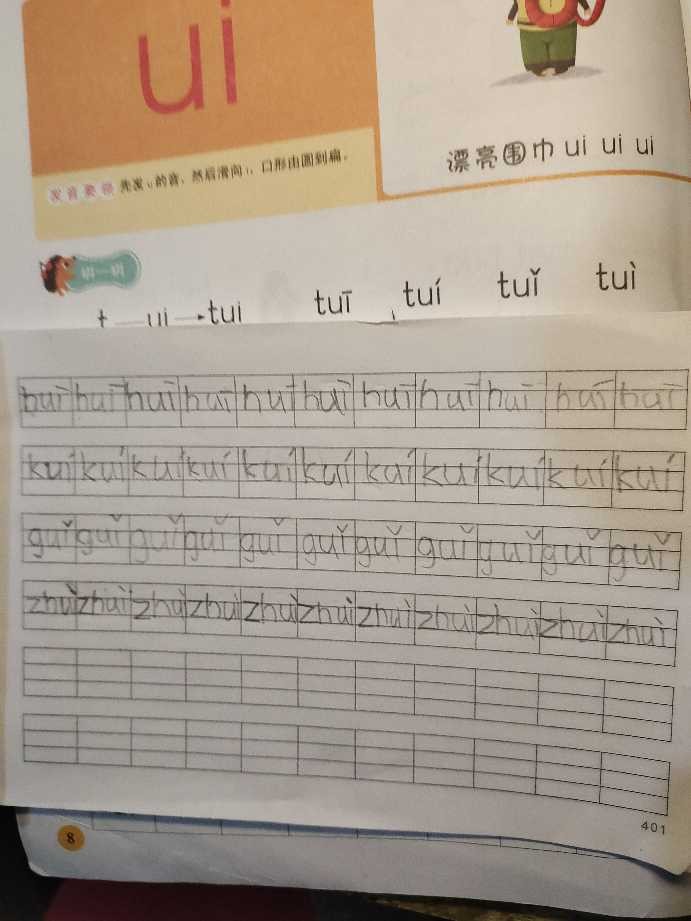 ui
发音要领 先发u的音，然后滑向i，口形由圆到扁。
漂亮围巾 ui ui ui
拼一拼
t — ui → tui tuī tuí tuǐ tuì
huī huī huī huī huī huī huī huī huī huī huī
kuí kuí kuí kuí kuí kuí kuí kuí kuí kuí kuí
guǐ guǐ guǐ guǐ guǐ guǐ guǐ guǐ guǐ guǐ guǐ
zhuì zhuì zhuì zhuì zhuì zhuì zhuì zhuì zhuì zhuì zhuì
401
8